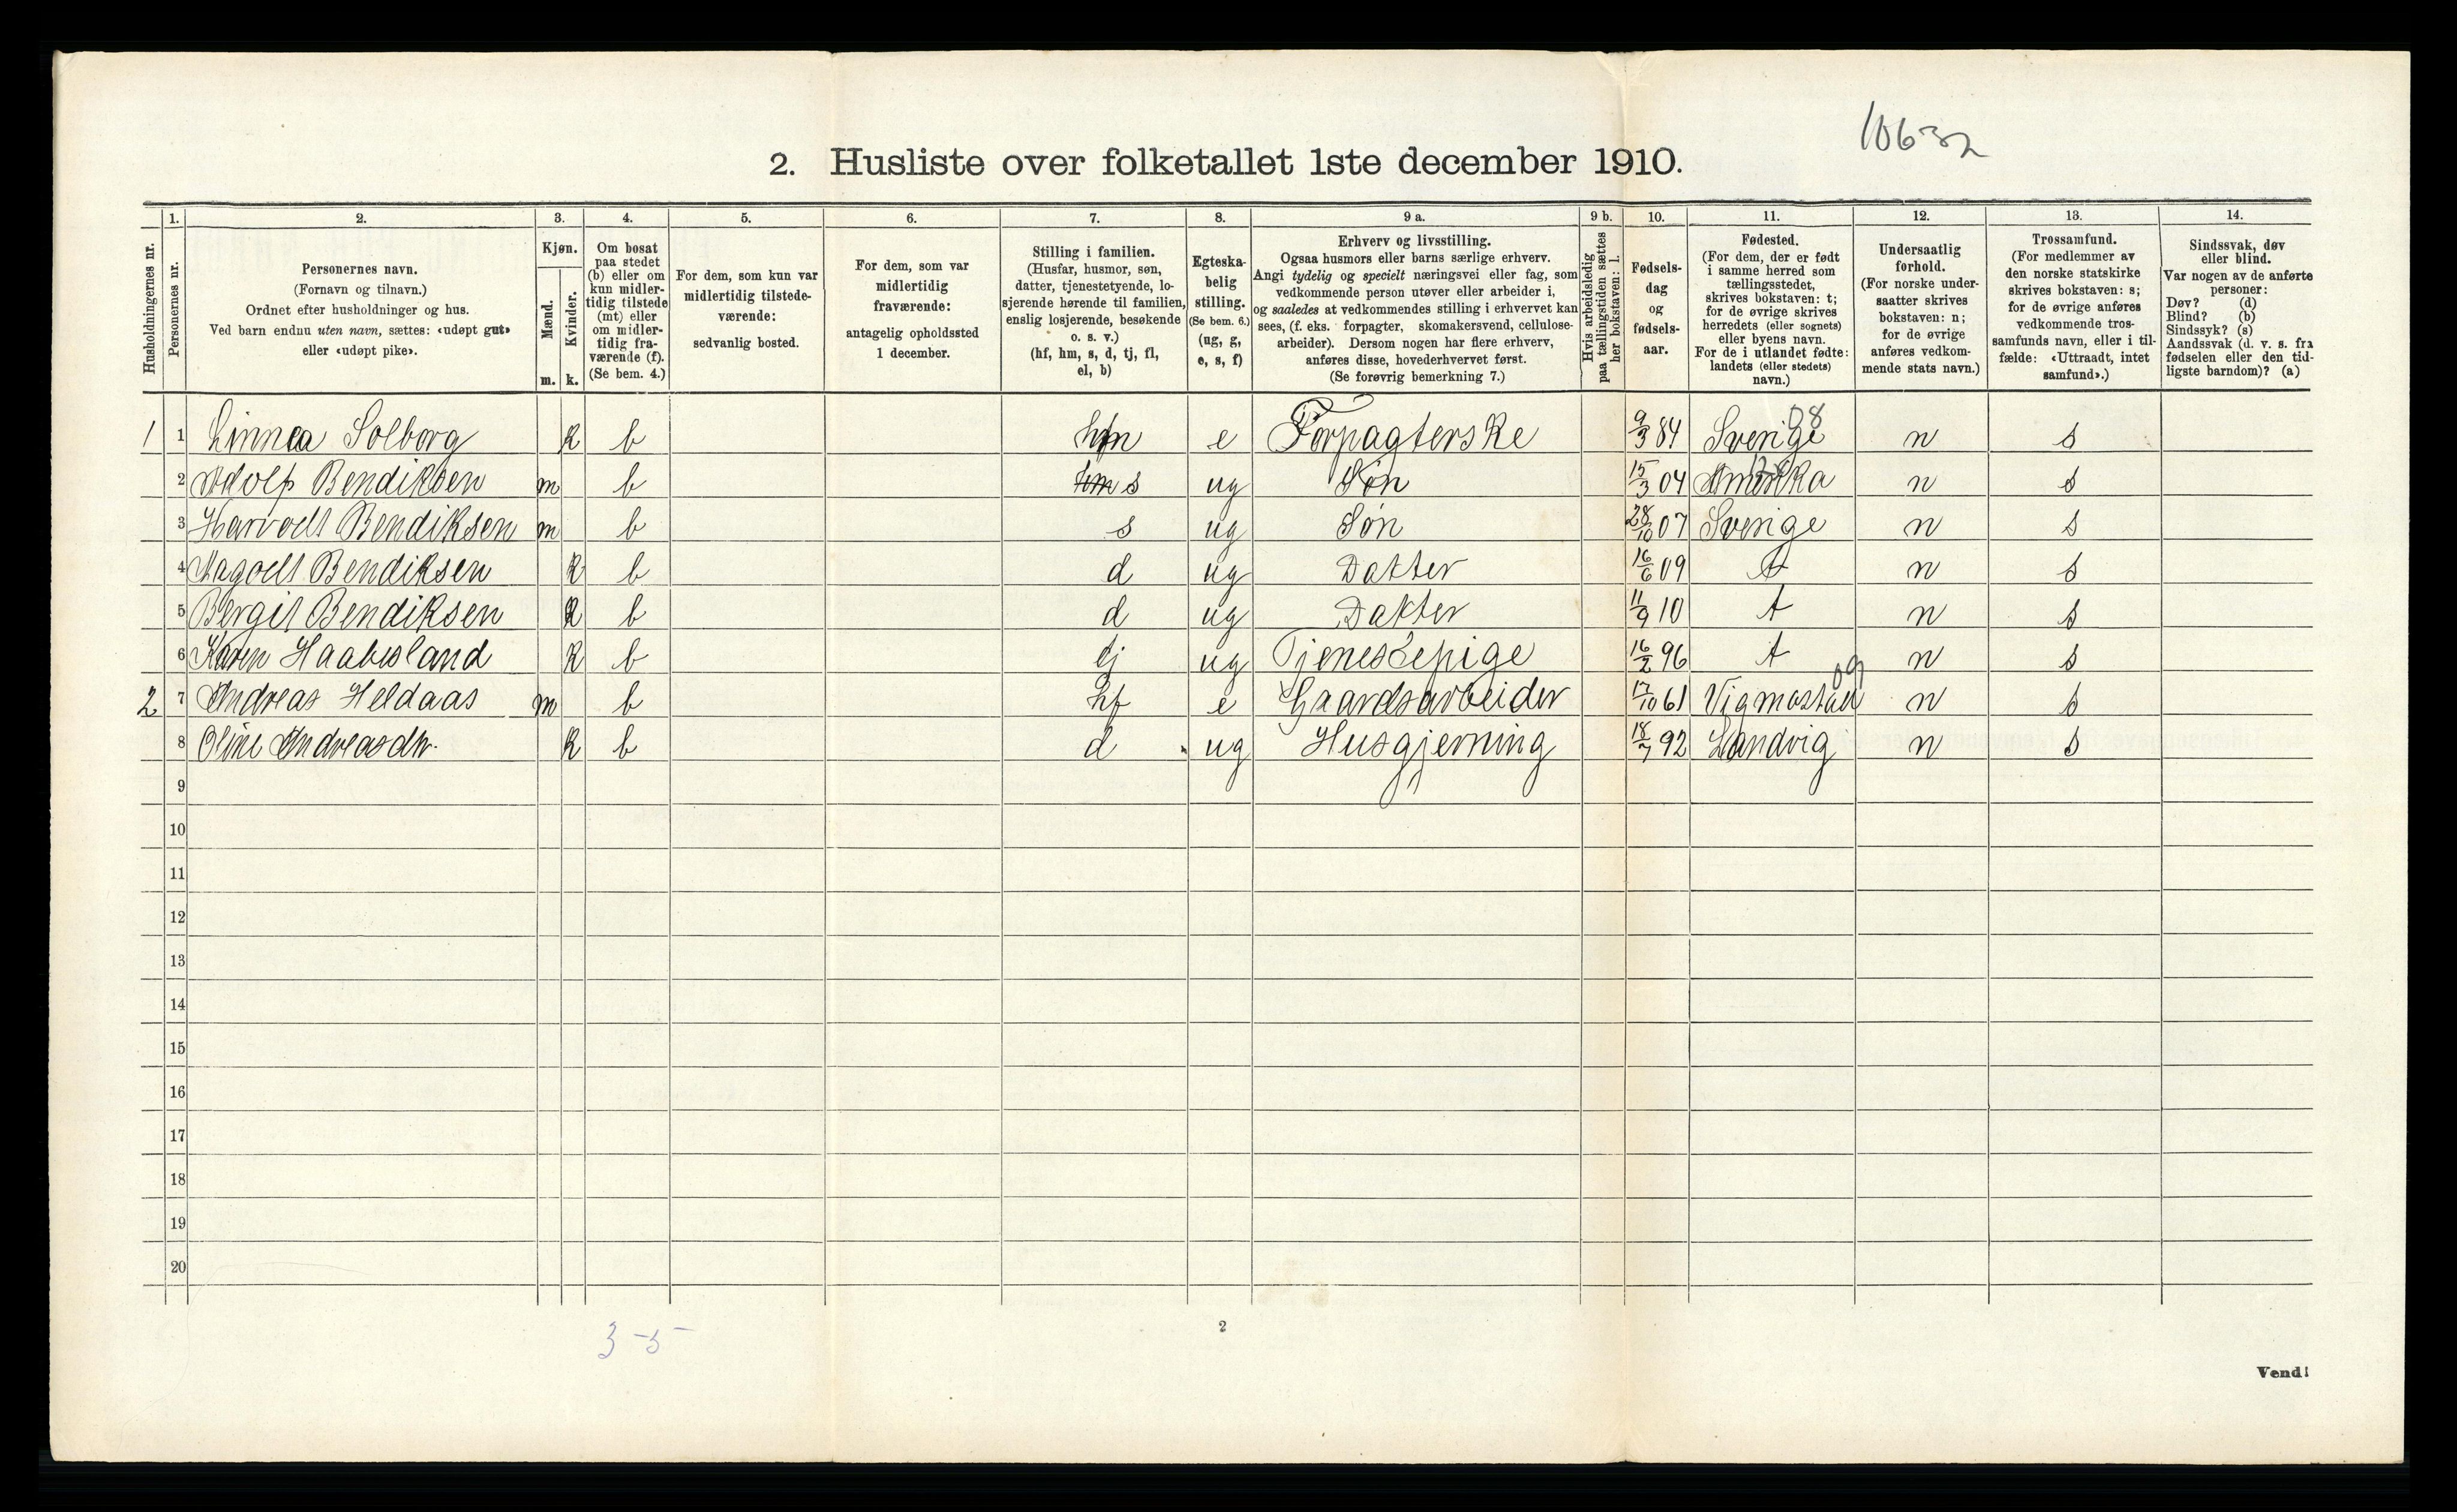 10632
2. Husliste over folketallet 1ste december 1910.
1. 2. 3. 4. 5. 6. 7. 8. 9 a. 9 b. 10. 11. 12. 13. 14.
Husholdningernes nr.
Personernes nr.
Personernes navn.
(Fornavn og tilnavn.)
Ordnet efter husholdninger og hus.
Ved barn endnu uten navn, sættes: «udøpt gut»
eller «udøpt pike».
Kjøn.
Mænd.
Kvinder.
m. k.
Om bosat
paa stedet
(b) eller om
kun midler-
tidig tilstede
(mt) eller
om midler-
tidig fra-
værende (f).
(Se bem. 4.)
For dem, som kun var
midlertidig tilstede-
værende:
sedvanlig bosted.
For dem, som var
midlertidig
fraværende:
antagelig opholdssted
1 december.
Stilling i familien.
(Husfar, husmor, søn,
datter, tjenestetyende, lo-
sjerende hørende til familien,
enslig losjerende, besøkende
o. s. v.)
(hf, hm, s, d, tj, fl,
el, b)
Egteska-
belig
stilling.
(Se bem. 6.)
(ug, g,
e, s, f)
Erhverv og livsstilling.
Ogsaa husmors eller barns særlige erhverv.
Angi tydelig og specielt næringsvei eller fag, som
vedkommende person utøver eller arbeider i,
og saaledes at vedkommendes stilling i erhvervet kan
sees, (f. eks. forpagter, skomakersvend, cellulose-
arbeider). Dersom nogen har flere erhverv,
anføres disse, hovederhvervet først.
(Se forøvrig bemerkning 7.)
Hvis arbeidsledig
paa tællingstiden sættes
her bokstaven: l.
Fødsels-
dag
og
fødsels-
aar.
Fødested.
(For dem, der er født
i samme herred som
tællingsstedet,
skrives bokstaven: t;
for de øvrige skrives
herredets (eller sognets)
eller byens navn.
For de i utlandet fødte:
landets (eller stedets)
navn.)
Undersaatlig
forhold.
(For norske under-
saatter skrives
bokstaven: n;
for de øvrige
anføres vedkom-
mende stats navn.)
Trossamfund.
(For medlemmer av
den norske statskirke
skrives bokstaven: s;
for de øvrige anføres
vedkommende tros-
samfunds navn, eller i til-
fælde: «Uttraadt, intet
samfund».)
Sindssvak, døv
eller blind.
Var nogen av de anførte
personer:
Døv? (d)
Blind? (b)
Sindssyk? (s)
Aandssvak (d. v. s. fra
fødselen eller den tid-
ligste barndom)? (a)
1 1 Linnea Solborg k b hm e Forpagterske 9/3 84 Sverige 08 n s
2 Adolf Bendiksen m b hm s ug Søn 15/3 04 Amerika n s
3 Harvodt Bendiksen m b s ug Søn 28/10 07 Sverige n s
4 Magodt Bendiksen k b d ug Datter 16/6 09 t n s
5 Bergit Bendiksen k b d ug Dakter 11/9 10 t n s
6 Karen Haabesland k b tj ug Tjenestepige 16/2 96 t n s
2 7 Andreas Heldaas m b hf e Gaardsarbeider 17/10 61 Vigmostad 09 n s
8 Oline Andreasdtr. k b d ug Husgjerning 18/7 92 Landvig n s
9
10
11
12
13
14
15
16
17
18
19
20
3-5-
2
Vend!